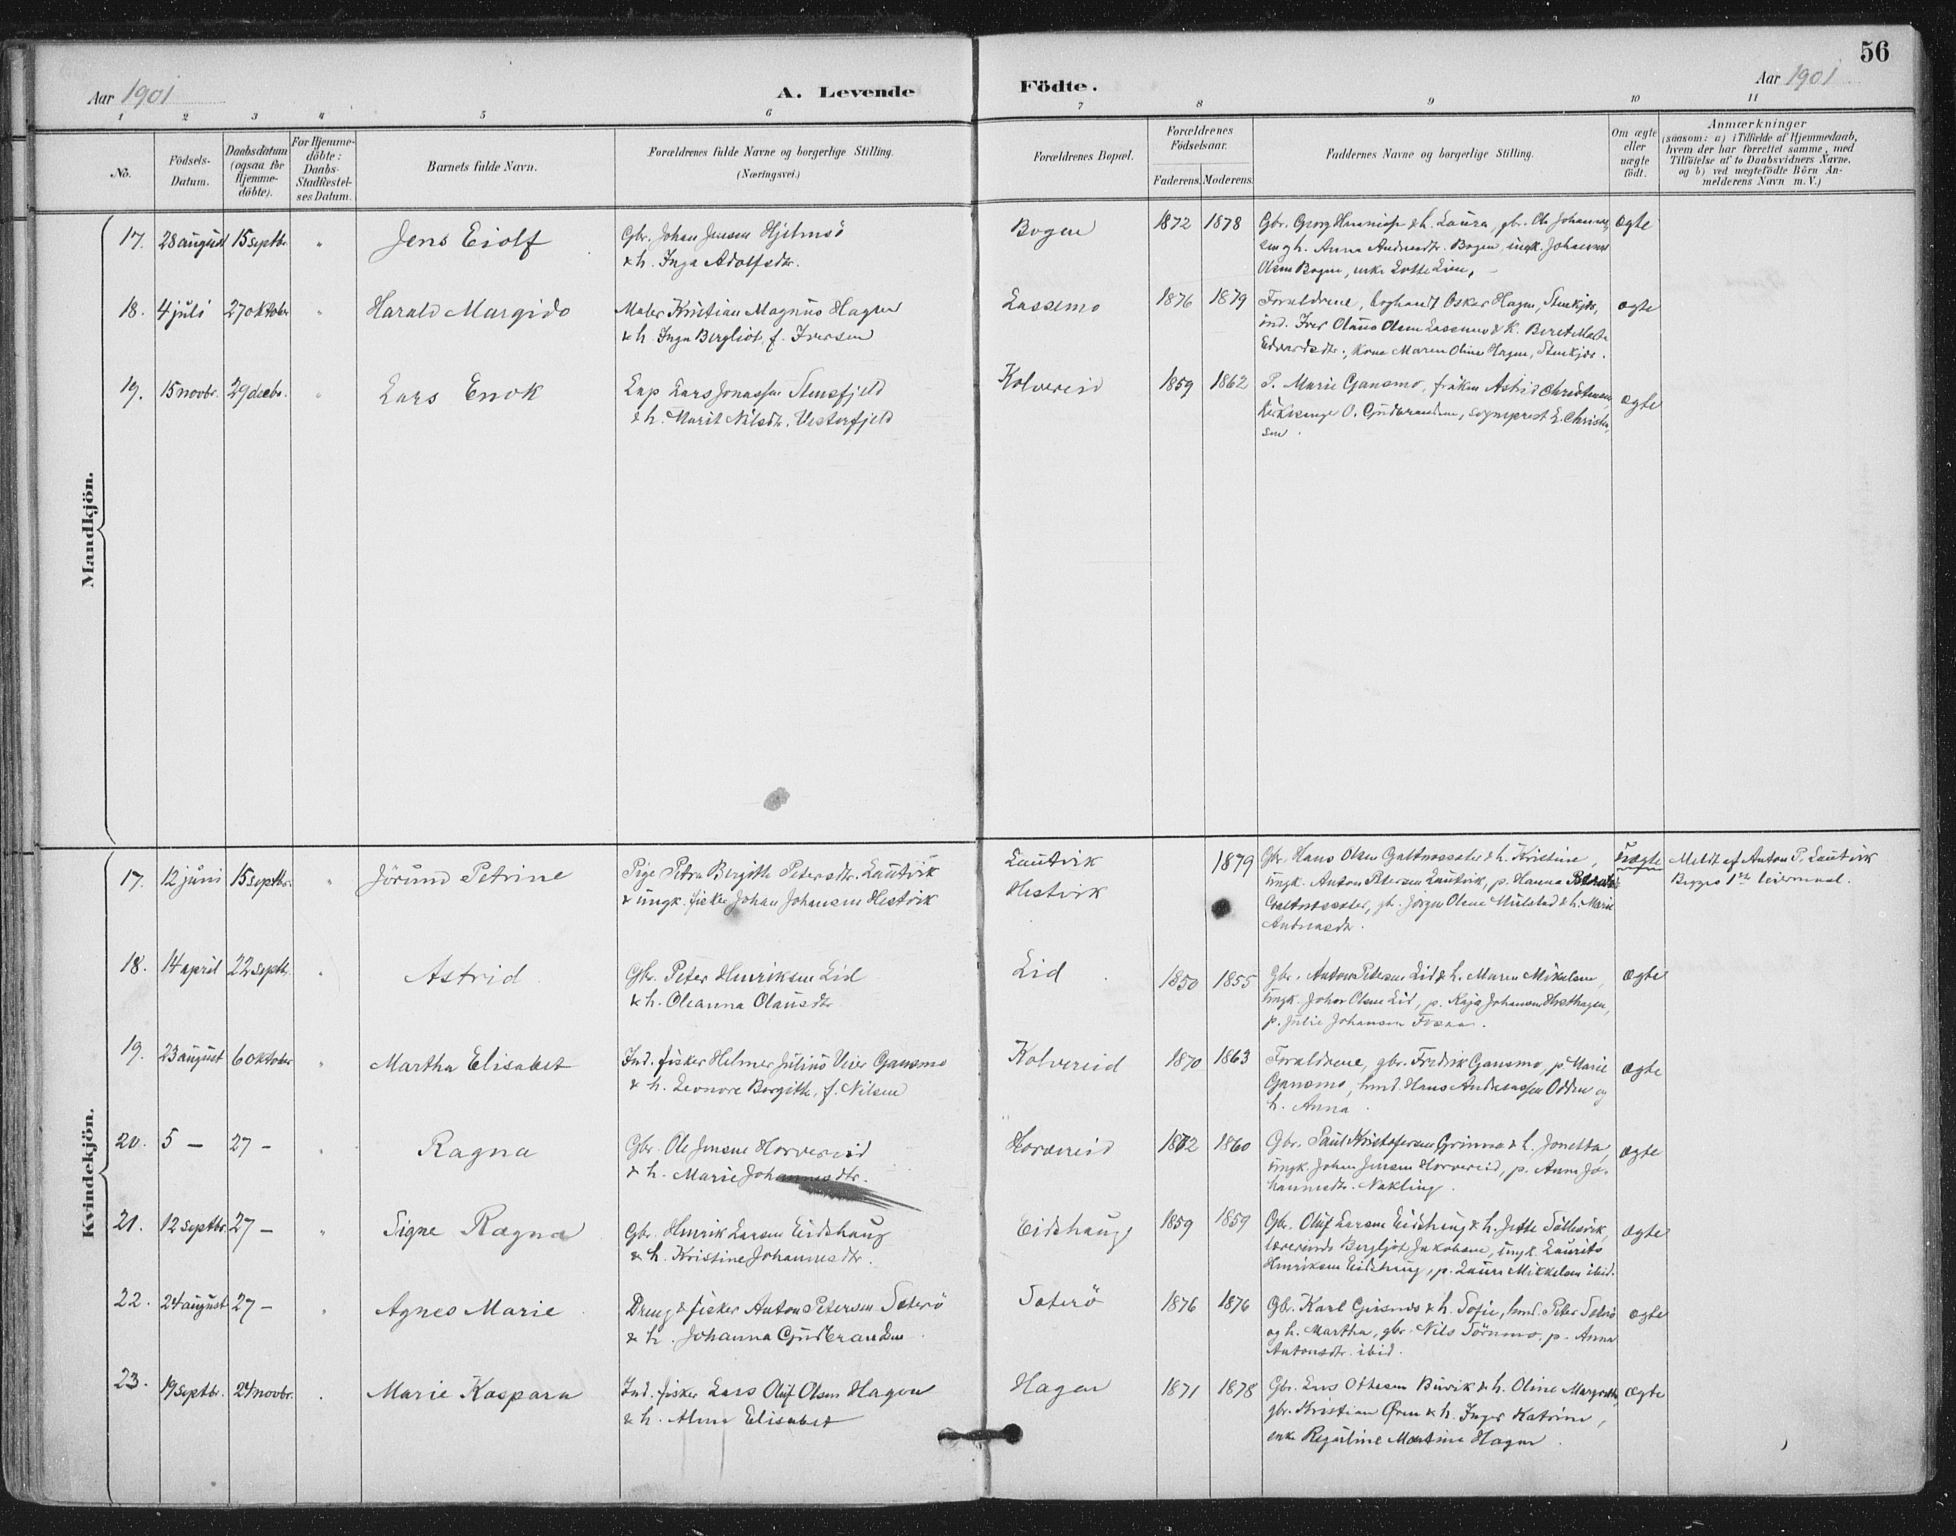 56
Aar 1901
A. Levende
Födte.
Aar 1901
1 2 3 4 5 6 7 8 9 10 11
No.
Födsels-
Datum.
Daabsdatum
(ogsaa for
Hjemme-
döbte).
For Hjemme-
döbte:
Daabs-
Stadfæstel-
ses Datum.
Barnets fulde Navn.
Forældrenes fulde Navne og borgerlige Stilling.
(Næringsvei.)
Forældrenes Bopæl.
Forældrenes
Födselsaar.
Faderens. Moderens.
Faddernes Navne og borgerlige Stilling.
Om ægte
eller
uægte
födt.
Anmærkninger
(saasom: a) i Tilfælde af Hjemmedaab,
hvem der har forrettet samme, med
Tilföielse af to Daabsvidners Navne,
og b) ved uægtefödte Börn An-
melderens Navn m. V.)
Mandkjön.
17. 28 august 15 septbr. " Jens Eiolf
Gbr. Johan Jensen Hjelmsö
& h. Inga Adolfsdtr.
Bogen 1872 1878
Gbr. Georg & h. Laura, gbr. Ole Johannes
sen og h. Anna Andreasdtr. Bogen, ungk. Johannes
Olsen Bogen, enke Lotte Lien,
ægte
18. 4 juli 27 oktober " Harald Margido
Maler Kristian Magnus Hagen
& h. Inga Bergliot, f. Iversen
Lassemo 1876 1879
Forældrene, Oskar Hagen, Stenkjær,
ind. Iver Olaus Olsen Lassemo & k. Beret Marta
Edvardsdtr., kone Maren Oline Hagen, Stenkjær.
ægte
19. 15 novbr. 29 decbr. " Lars Enok
Lap Lars Jonassen Stensfjeld
& h. Marit Nilsdtr. Vesterfjeld
Kolvereid 1859 1862
P. Marie Gansmo, fröken Astrid Christensen,
kirkesanger O. Gudbrandsen, sogneprest E. Christen
sen.
ægte
Kvindekjön.
17. 12 juni 15 septbr. " Jörund Petrine
Pige Petra Bergith Petersdtr. Lautvik
& ungk. fisker Johan Johansen Hestvik
Lautvik
Hestvik
1879
Gbr. Hans Olsen Galtnessæter & h. Kristine,
ungk. Anton Petersen Lautvik, p. Hanna
Galtnessæter, gb. Jörgen Olsen Mulstad & h. Marie
Antonsdtr.
Uægte
Meldt af Anton P. Lautvik
Begges 1ste leiermaal.
18. 14 april 22 septb. " Astrid
Gbr. Peter Henriksen Lid
& h. Oleanna Olausdtr.
Lid 1850 1855
Gbr. Anton Petersen Lid & h. Maren Mikalsen,
ungk. Johan Olsen Lid, p. Kaja Johansen Hesthagen,
p. Julie Johansen
ægte
19. 23 august 6 oktober " Martha Elisabet
Ind. fisker Helmer Julius Gansmo
& h. Leonore Bergithe, f. Nilsen
Kolvereid 1870 1863
Forældrene, gbr. Fredrik Gansmo, p. Marie
Gansmo, hmd. Hans Andreassen Odden og
h. Anna.
ægte
20. 5 — 27 — " Ragna
Gbr. Ole Jensen Horvereid
& h. Marie Johannesdtr.
Horvereid 1862 1860
Gbr. Paul Kristofersen Grinna & h. Jonetta,
ungk. Johan Jensen Horvereid, p. Anna Jo-
hannesdtr. Nakling.
ægte
21. 12 septbr. 27 — " Signe Ragna
Gbr. Henrik Larsen Eidshaug
& h. Kristine Johannesdtr.
Eidshaug 1859 1859
Gbr. Oluf Larsen Eidshaug & h. Jette
lærerinde Bergljot Jakobsen, ungk. Laurits
Henriksen Eidshaug, p. Laura Mikkelsen ibid.
ægte
22. 24 august 27 — " Agnes Marie
Dreng & fisker Anton Petersen Säterö
& h. Johanna Gudbrandsen.
Säterö 1876 1876
Gbr. Karl & h. Sofie, hmd. Peter Säterö
og h. Martha, gbr. Nils p. Anna
Antonsdtr. ibid.
ægte
23. 19 septbr. 24 novbr. " Marie Kaspara
Ind. fisker Lars Oluf Olsen Hagen
& h. Alma Elisabet
Hagen 1871 1878
Gbr. Lars Ottesen Buvik & h. Oline Margrethe,
gbr. Kristian Ören & h. Inger Katrine,
enke Regitine Martine Hagen.
ægte